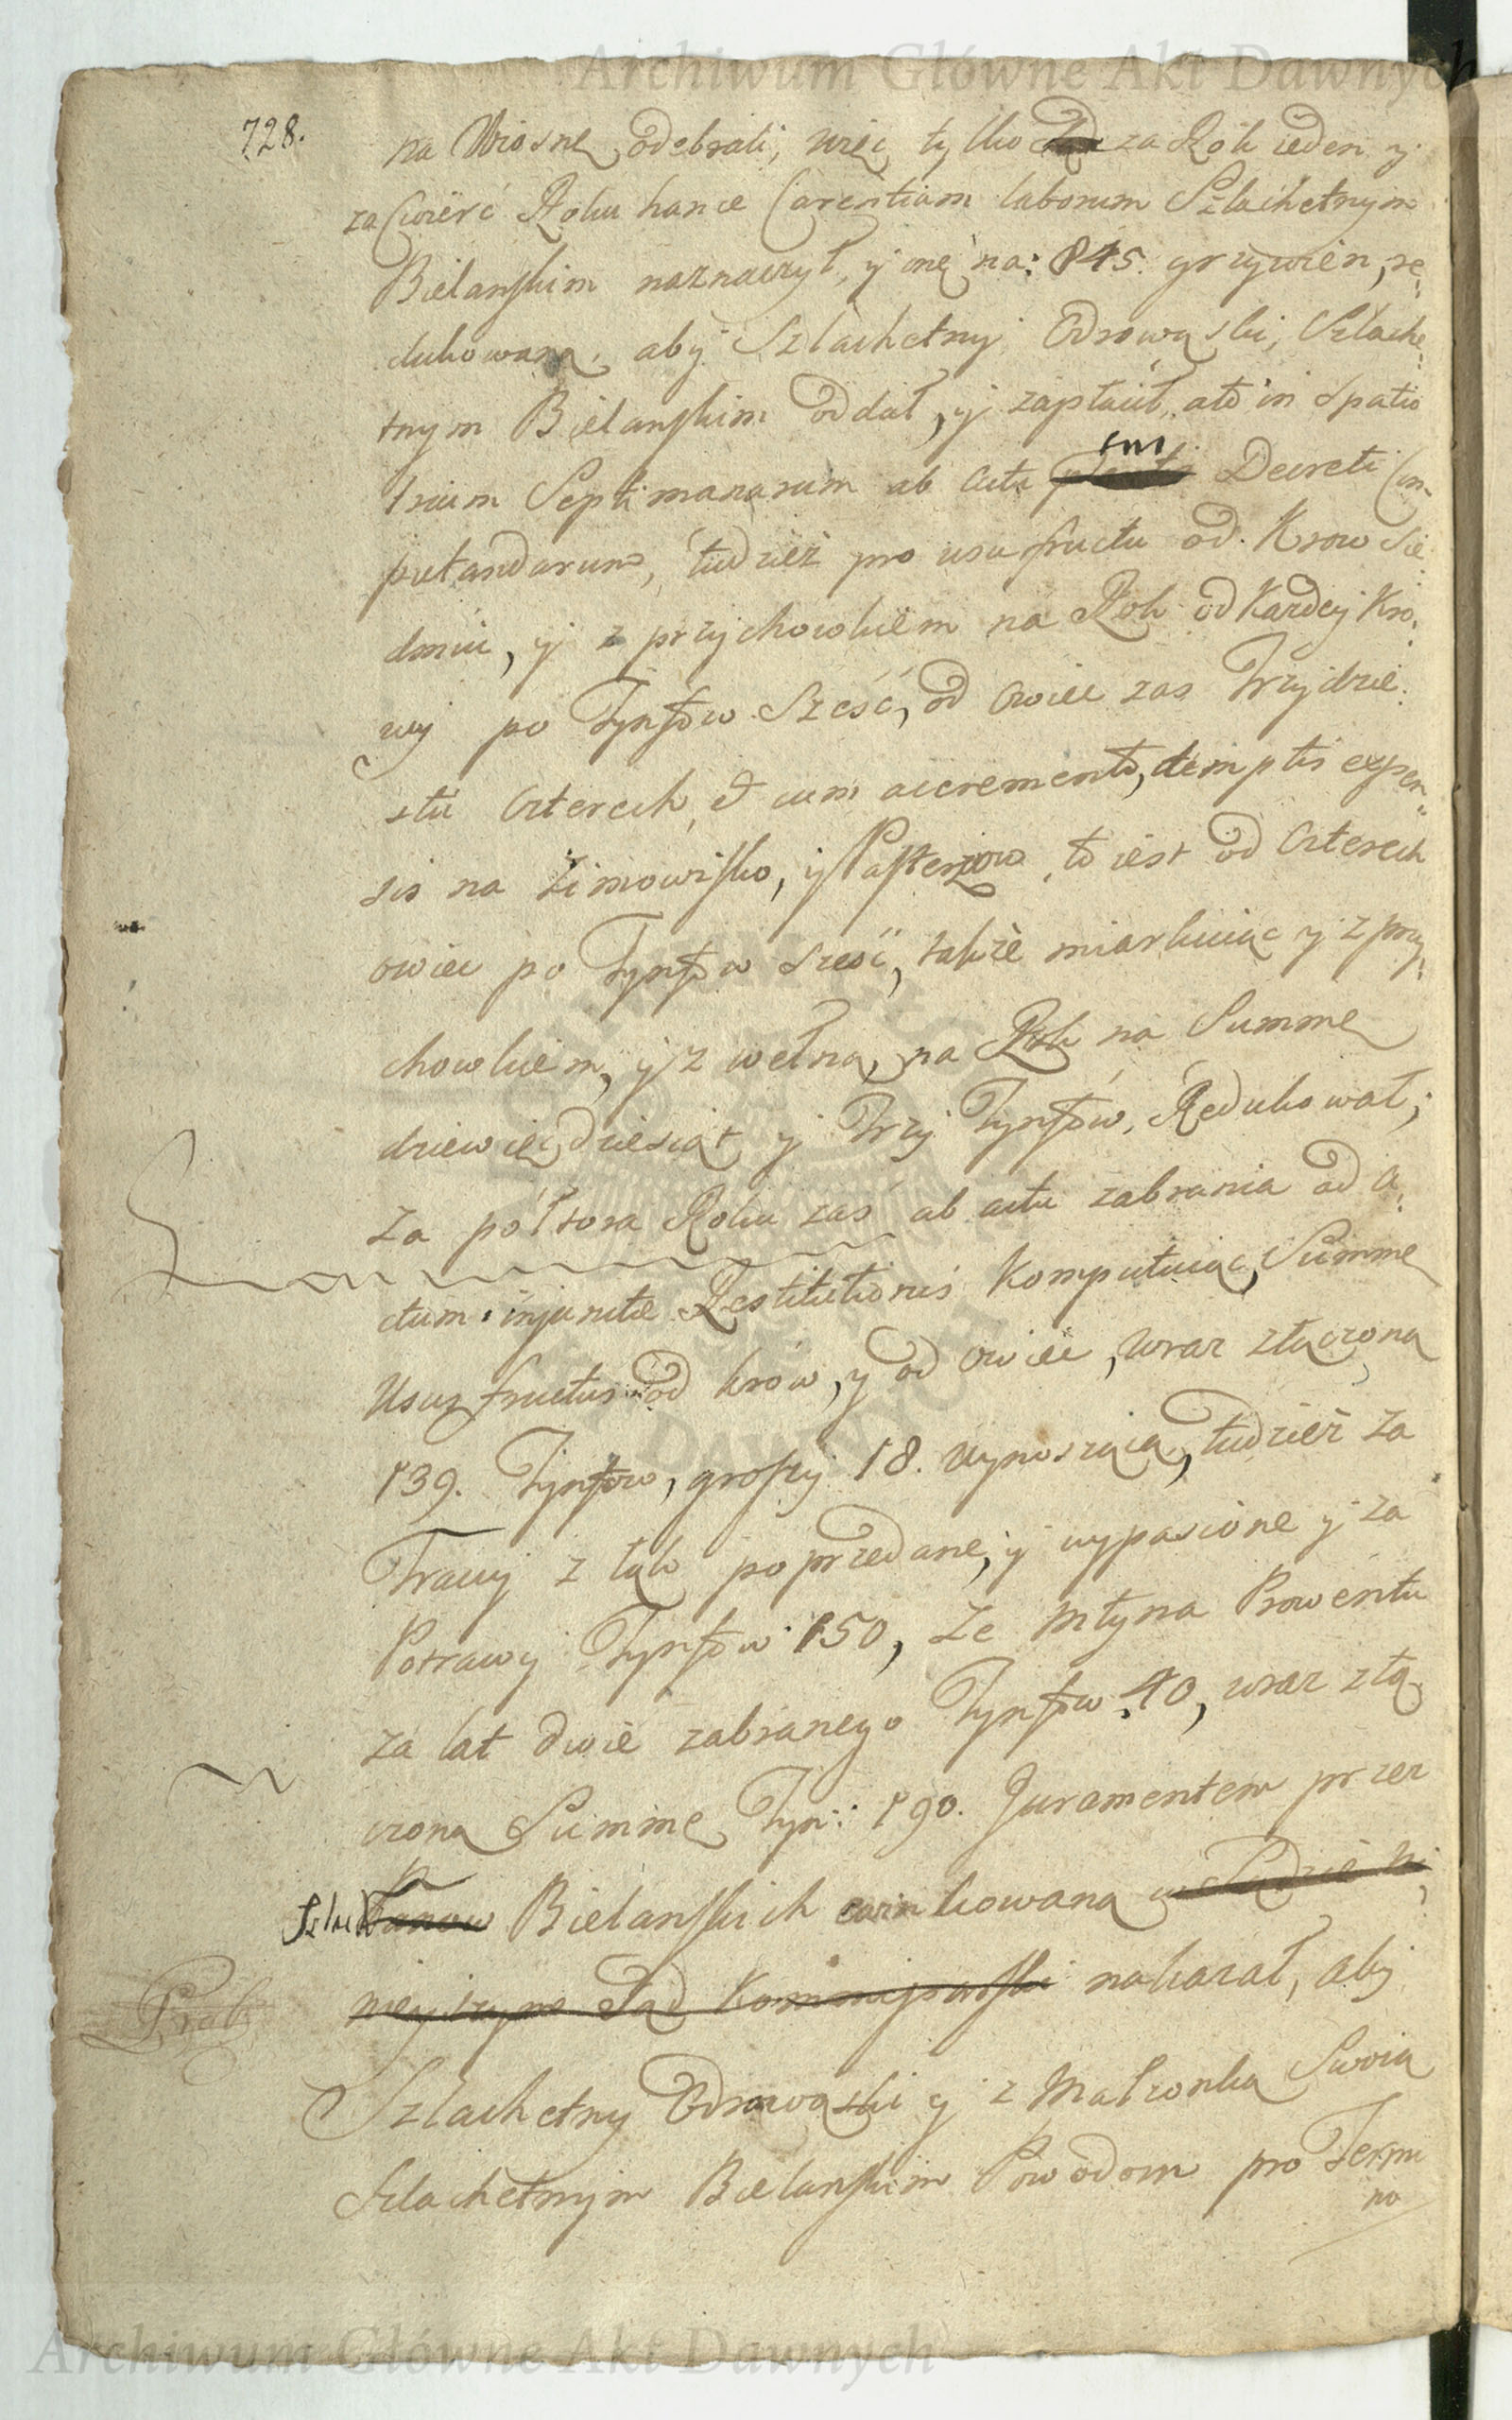 Archiwum Główne Akt Dawnych
728.
na Wiosnę odebrali, więc tylko za Rok ieden y
za Cwierć Roku hanc Carentiam laborum Szlachetnym
Bielanskim naznaczył, y onę na: 845. grzywien, re„
dukowaną, aby Szlachetny Odrowąski, Szlache„
tnym Bielanskim oddał, y zapłacił, a to in Spatio
trium Septimanarum ab actu sui Decreti Com„
putandarum, tudzież pro usufructu od Krow Sie„
dmiu, y z przychowkiem na Rok od Kazdey Kro„
wy po Tynfow Sześć, od Owiec zas Trzydzie„
stu Czterech, et cum accremento, demptis expen„
sis na Zimowisko, y Pasterzow, to iest od Czterech
owiec po Tynfow sześć, także miarkuiąc y z przy„
chowkiem, y z wełną, na Rok na Summę
dziewięćdziesiąt y Trzy Tynfów, Redukował;
Za półtora Roku zaś ab actu zabrania ad a„
ctum injunctae Restitutionis Komputuiąc, Summę
Ususfructus od krów, y od Owiec, wraz złączoną
139. Tynfow, groszy 18. wynoszącą, tudzież Za
Trawy z łąk poprzedane, y wypasione y za
Potrawy Tynfow 150, Ze Młyna Prowentu
za lat dwie zabranego Tynfow 40, wraz złą„
czoną Summę Tyn: 190. Juramentem przez
Szlach Panow Bielanskich ewinkowaną w Sądzie Ni„
nieyszym Sąd Kommisarski nakazał, aby
Szlachetny Odrowąski y z Małzonką Swoią
Szlachetnym Bielanskim Powodom pro Termi
no
Archiwum Główne Akt Dawnych